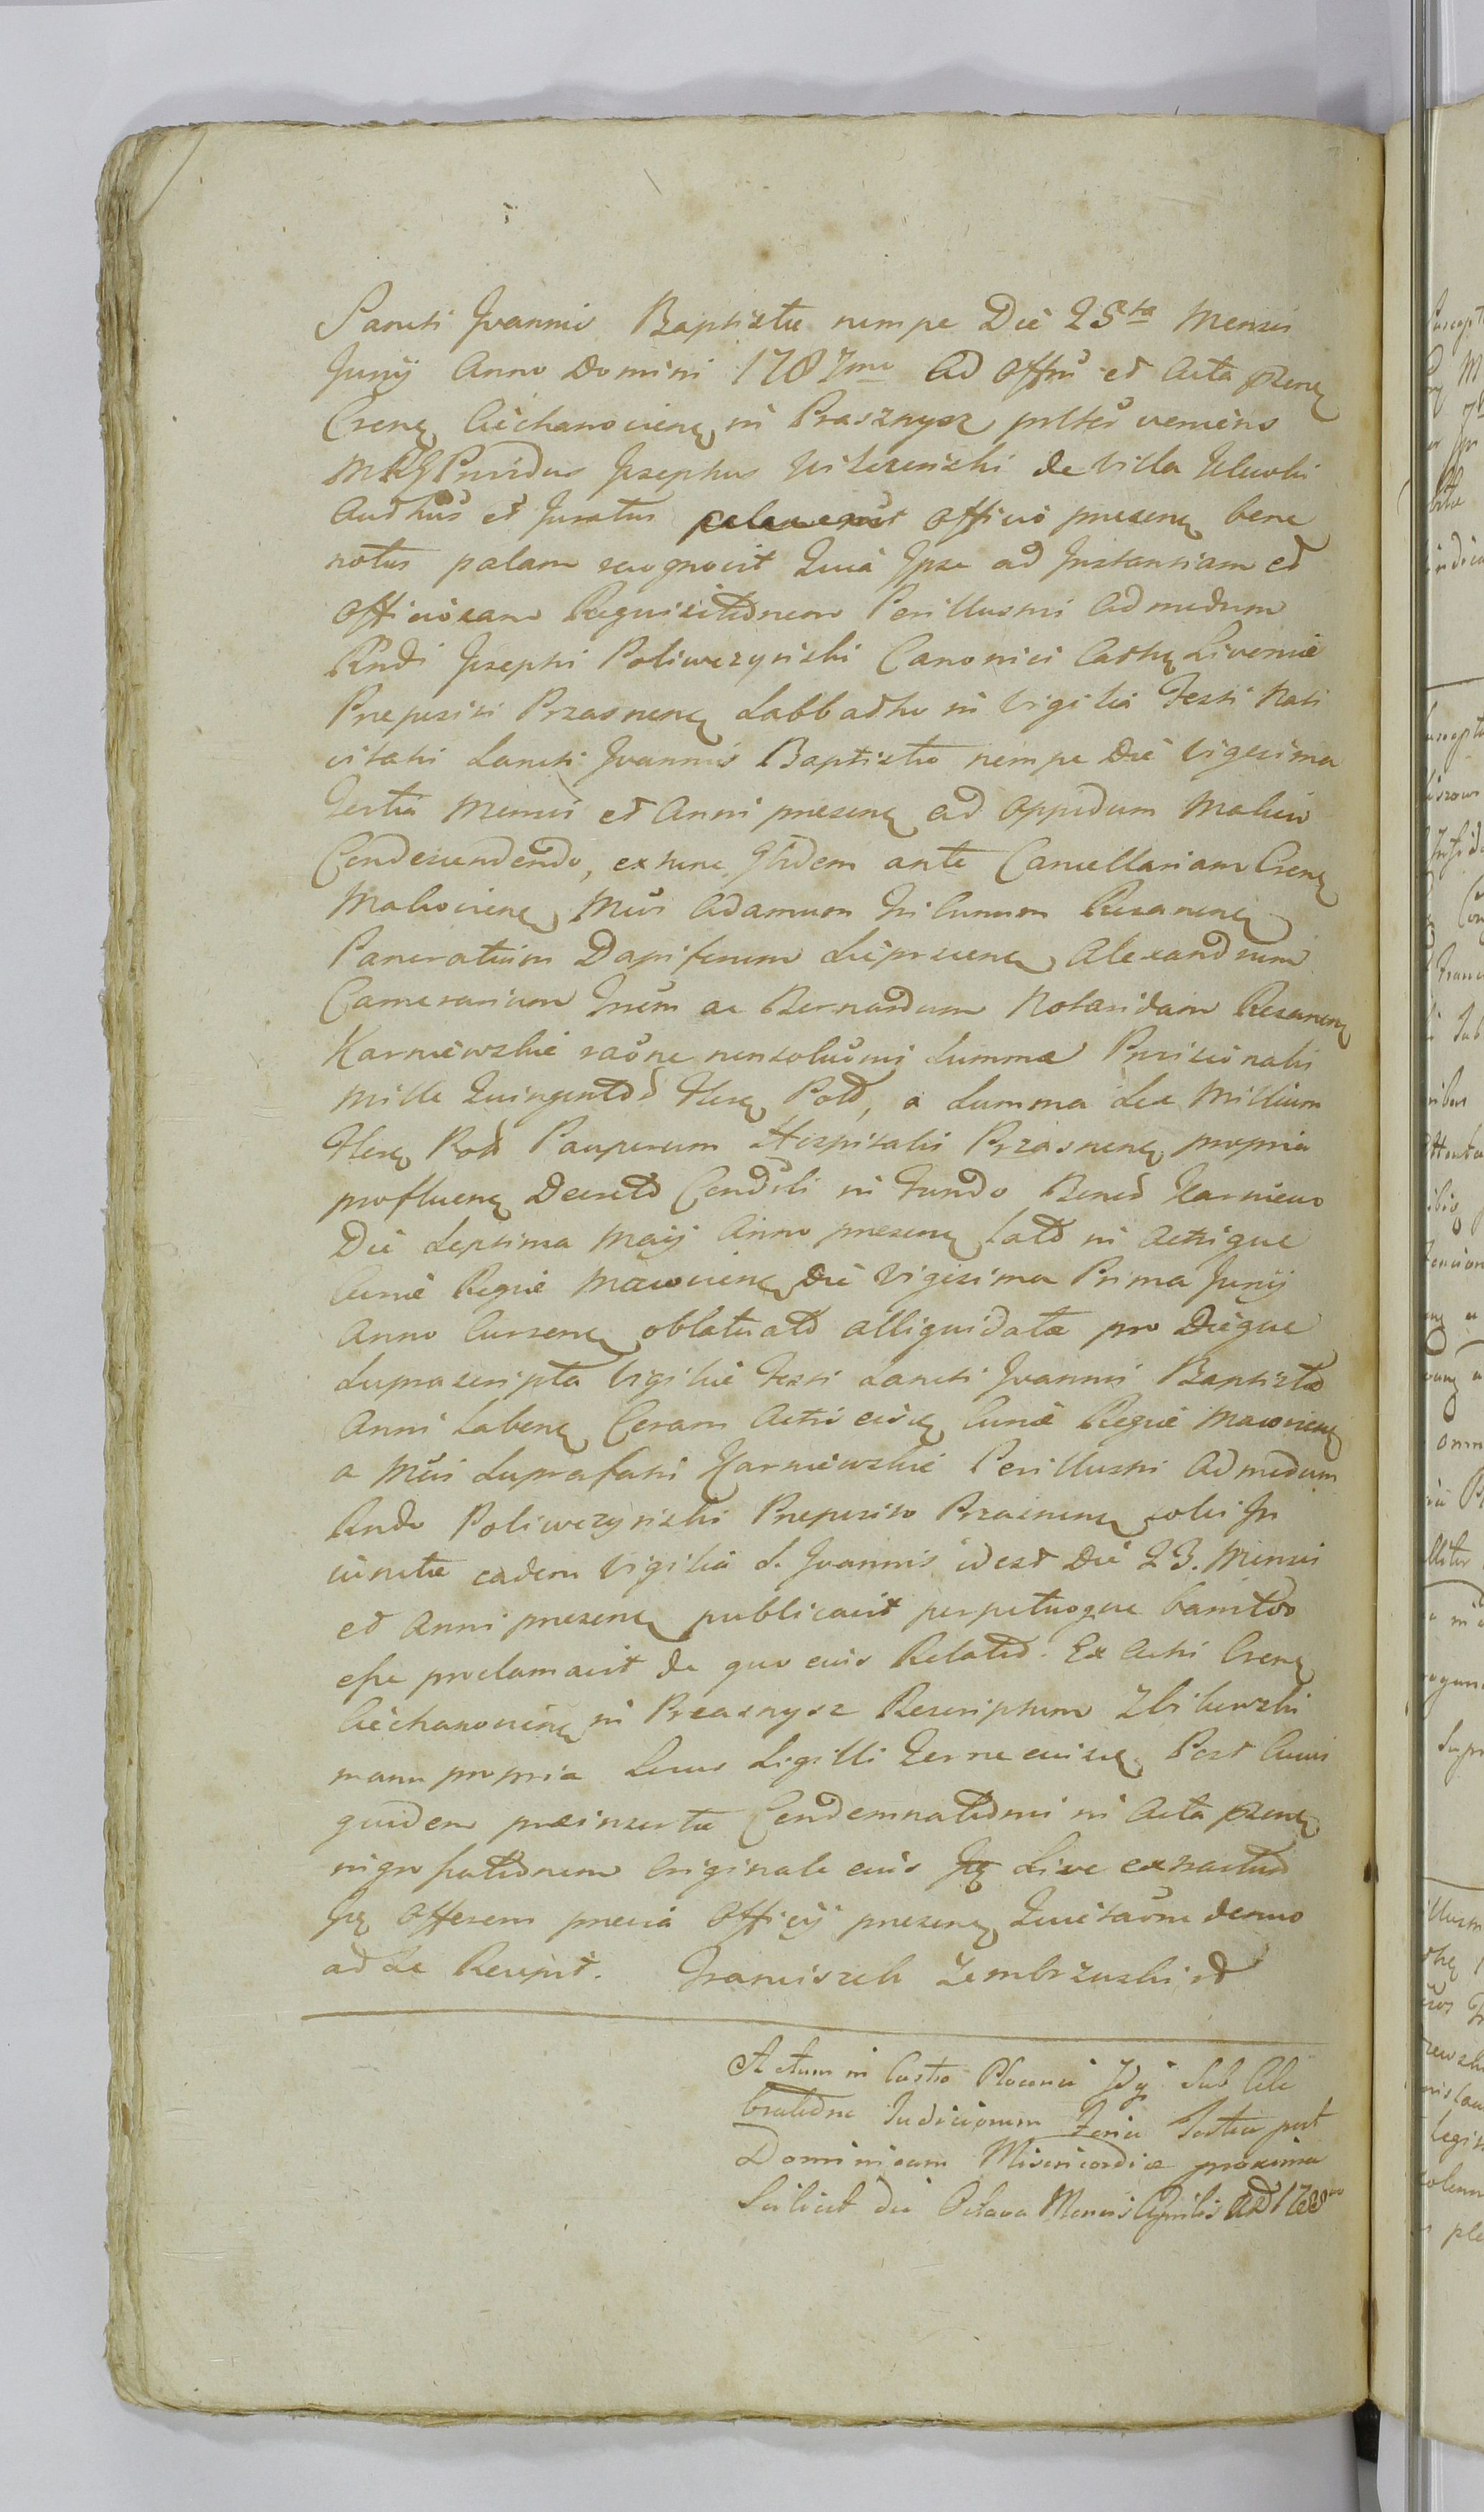 Sancti Joannis Baptistæ nempe Die 25ta Mensis
Junij Anno Domini 1787mo Ad Offm et Acta Præsen
Cren Ciechanovien in Prasznysz prltr veniens
Providus Josephus de Villa
Authus et Juratus Officio præsen bene
notus palam recognovit Quia Ipse ad Instantiam et
Officiosam Requisitionem Perillustris Admodum
Rndi Josephi Poliwczynski Canonici Cathe Livoniæ
Præpositi Przasnen Sabbatho in Vigilia Festi Nati
vitatis Sancti Joannis Baptistæ nempe Die Vigesima
Tertia Mensis et Anni præsen ad Oppidum Maków
Condescendendo, extunc Ibidem ante Cancellariam Cren
Makovien Mcos Adamum Tribunum Rozanen
Pancratium Dapiferum Alexandrum
Camerarium ac Bernardum Notarium Rozanen
Karniewskie raõne nonsolucionis Summæ Provisionalis
Mille Quingentor Flor Pol, a Summa Sex Millium
Flor Pol Pauperum Hospitalis Przasnen propria
profluen Decreto Condicti in Fundo Bonor Karniewo
Die Septima Maij Anno præsen lato in Actisque
Curiæ Regiæ Macovien Die Vigesima Prima Junij
Anno Curren oblatuato alliquidatæ pro Dieque
Suprascripta Vigiliæ Festi Sancti Joannis Baptistæ
Anni Laben Coram Actis eiusd Curiæ Regiæ Macovien
a Mcis Suprafatis Karniewskie Perillustri Admodum
Rndo Poliwczynski Præposito Przasnen solvi In
iunctæ eadem Vigilia S. Joannis idest Die 23. Mensis
et Anni præsen publicavit perpetuoque bannitos
esse proclamavit de quo eius Relatio. Ex Actis Cren
Ciechanovien in Przasnysz Rescriptum Zbikowski
manu propria Locus Sigilli Terrae eiusd Post Cuius
quidem præinsertæ Condemnationis in Acta præsen
ingrossationem Originale eius Sive extractum
Offerens præviæ Officij præsen Quietatione denuo
ad Se Recepit. Franciszek Zembrzuski
Actum in Castro Plocensi Sub Cele
bratione Iudiciorum Feria Tertia post
Dominicam Misericordiæ proxima
Scilicet die Octava Mensis Aprilis AD 1788mo